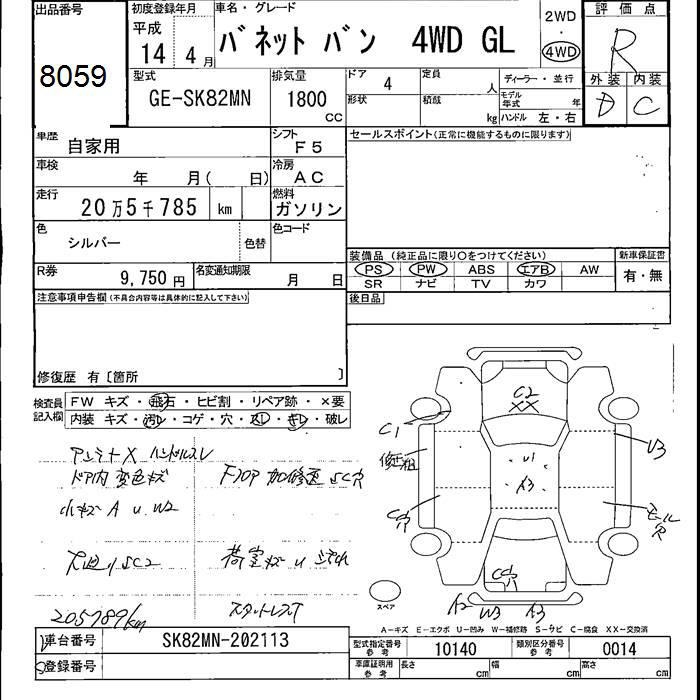 出品番号 初度登録年月 車名・グレード 2WD 評価点
8059 平成 14 4月 バネットバン 4WD GL 4WD R
型式 排気量 ドア 4 定員 人 ディーラー・並行 外装 内装
GE-SK82MN 1800 CC 形状 積載 kg モデル年式 年 ハンドル 左・右 D C
車歴 自家用 シフト F5 セールスポイント(正常に機能するものに限ります)
車検 年 月( 日) 冷房 AC
走行 20万5千785 km 燃料 ガソリン
色 シルバー 色替 色コード
装備品 (純正品に限り○をつけてください) 新車保証書
R券 9,750円 名変通知期限 月 日 PS PW ABS エアB AW 有・無
SR ナビ TV カワ
注意事項申告欄(不具合内容等は具体的に記入して下さい) 後日品
修復歴 有 [箇所 ]
検査員記入欄 FW キズ・飛石・ヒビ割・リペア跡・×要
内装 キズ・汚レ・コゲ・穴・スレ・キレ・破レ
C2
XX
C1
U3
U1
A3
C穴
モール穴
C穴
アンテナX ハンドルスレ
ドア内 変色キズ フロア 加修返しC穴
小キズ A U W2
下廻りSC2 荷室キズ U 汚れ
205789km スタットレスT
スペア A2 W3 A3
A-キズ E-エクボ U-凹み W-補修跡 S-サビ C-腐食 XX-交換済
車台番号 SK82MN-202113 型式指定番号 参考 10140 類別区分番号 参考 0014
登録番号 車庫証明用 参考 長さ cm 幅 cm 高さ cm